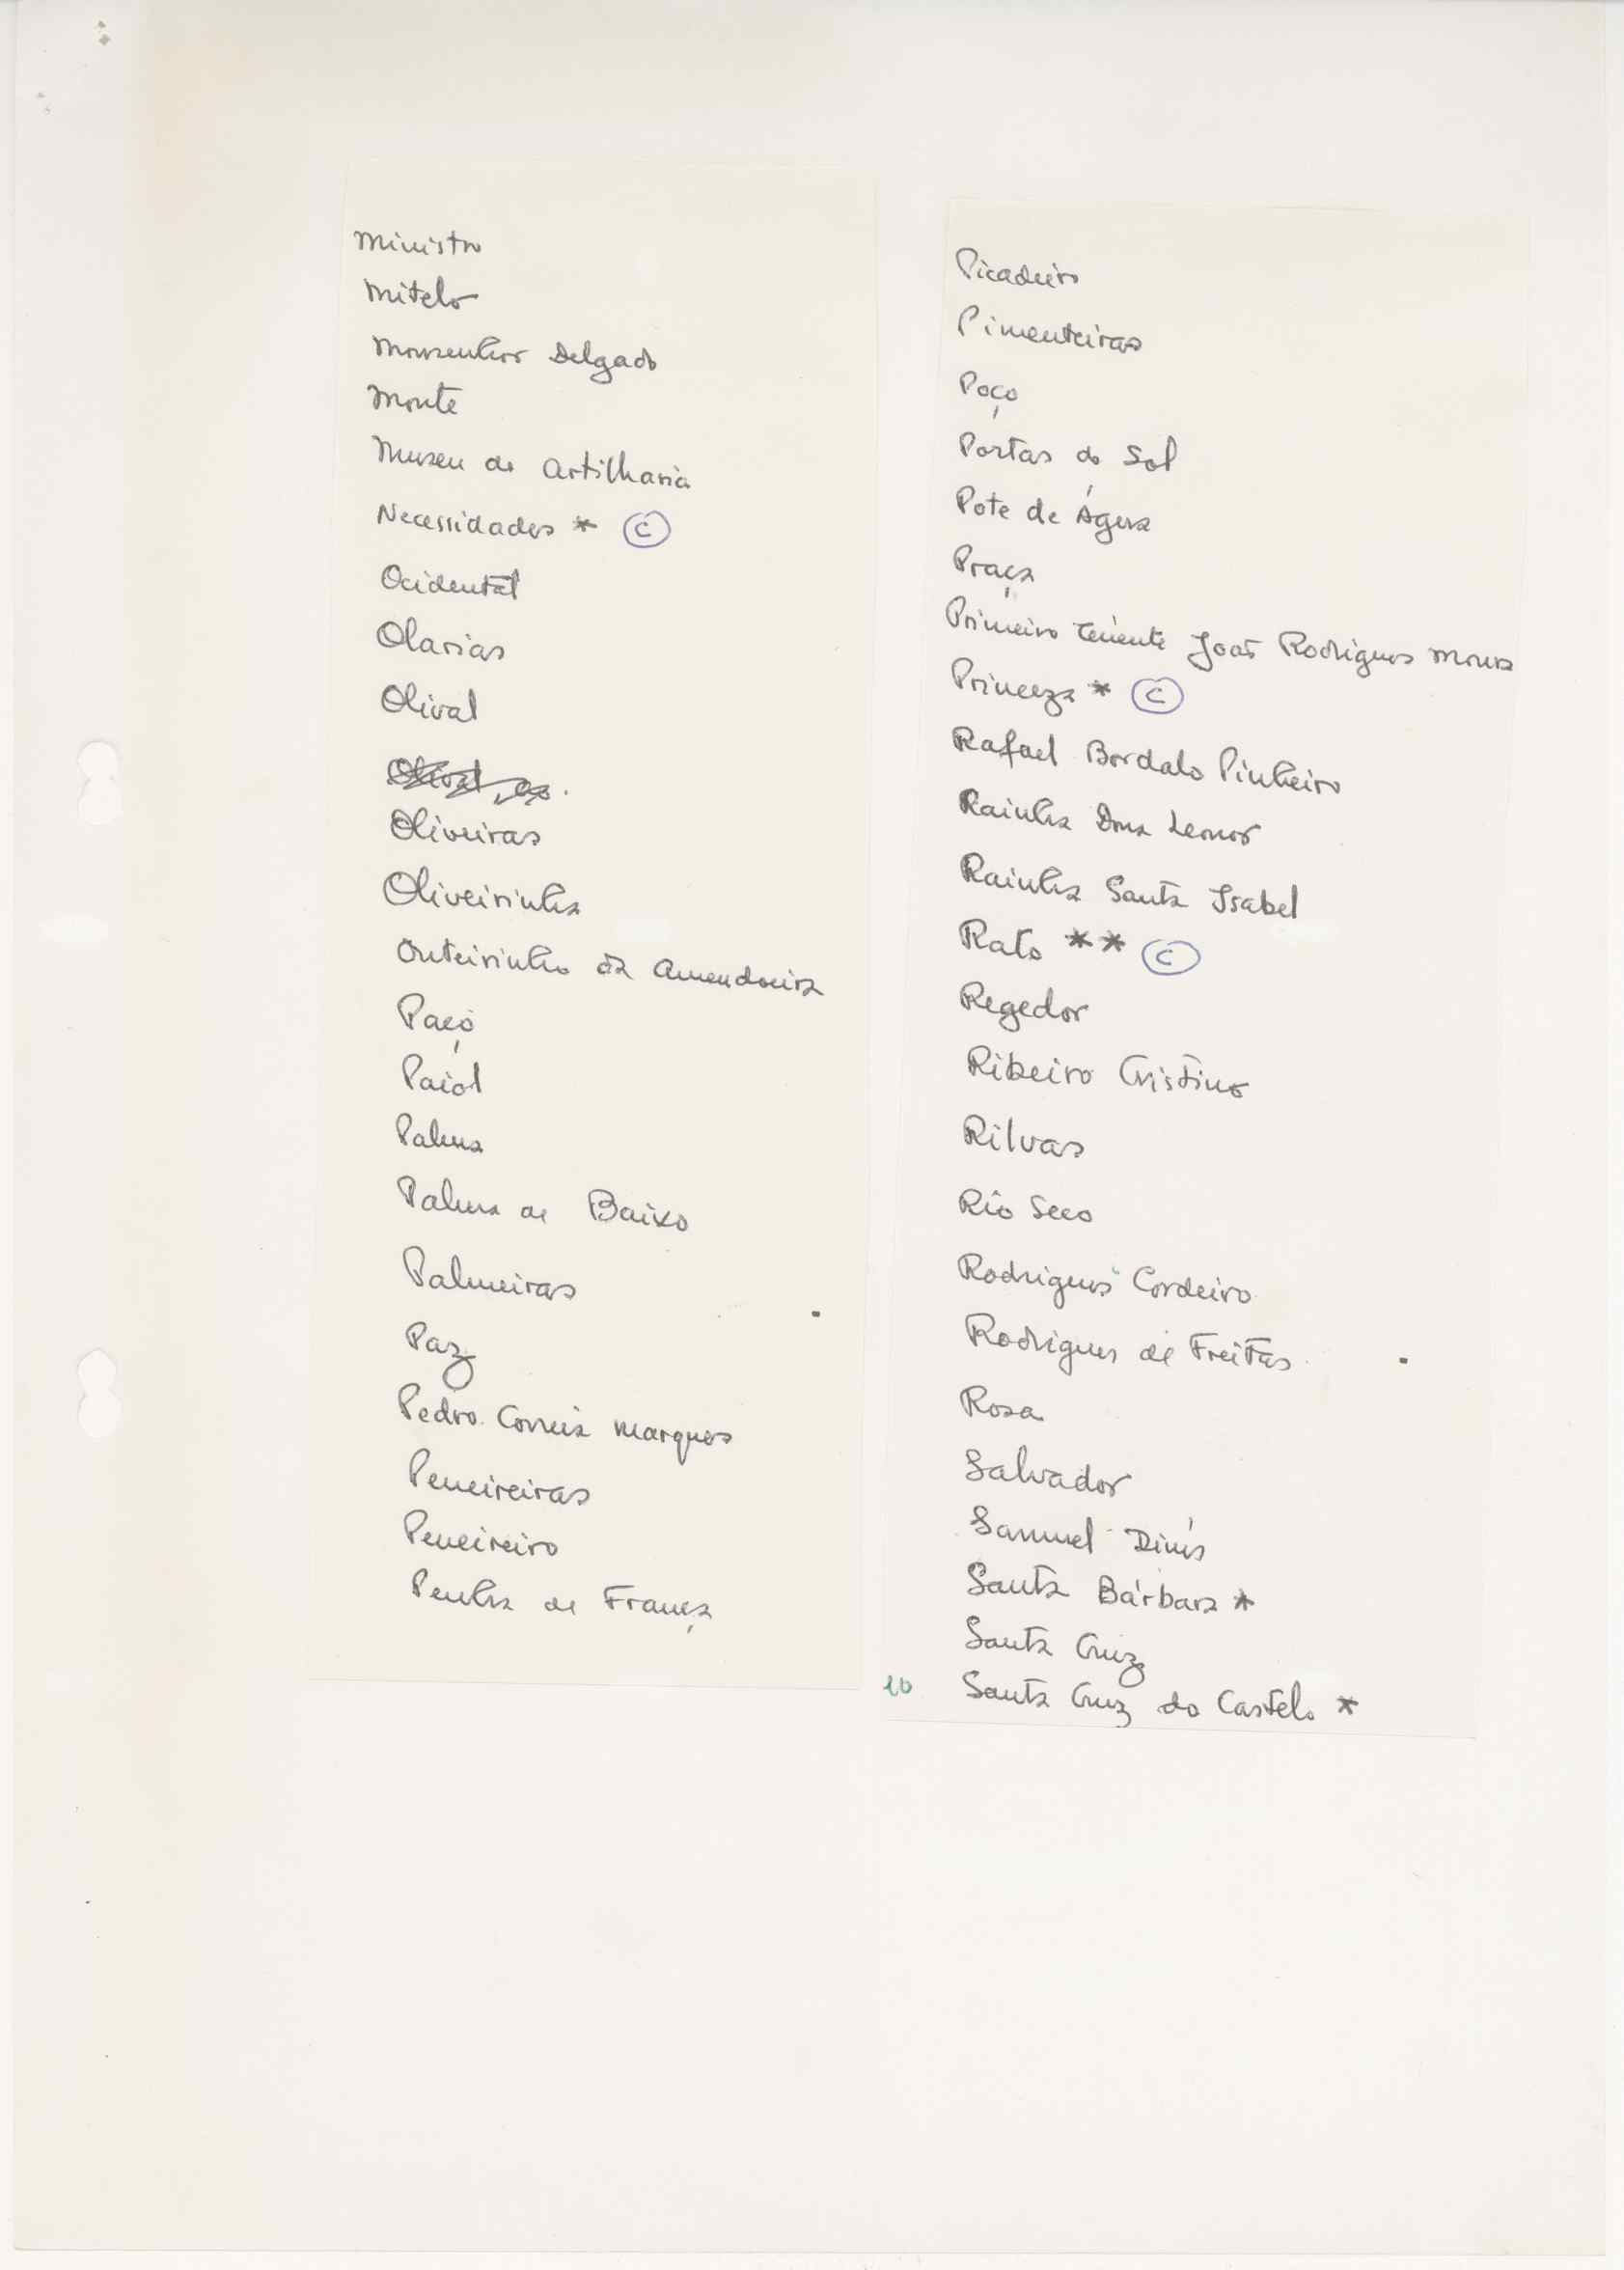 Ministro
Mitelo
Monsenhor Delgado
Monte
Museu de Artilharia
Necessidades * Ⓒ
Ocidental
Olarias
Olival
Oliveiras
Oliveirinha
Outeirinho da Amendoeira
Paço
Paiol
Palma
Palma de Baixo
Palmeiras
Paz
Pedro Correia Marques
Peneireiras
Peneireiro
Penha de França
Picadeiro
Pimenteiras
Poço
Portas do Sol
Pote de Água
Praça
Primeiro Tenente João Rodrigues Moura
Princeza * Ⓒ
Rafael Bordalo Pinheiro
Rainha Dona Leonor
Rainha Santa Isabel
Rato ** Ⓒ
Regedor
Ribeiro Cristino
Rilvas
Rio Seco
Rodrigues Cordeiro
Rodrigues de Freitas
Rosa
Salvador
Samuel Dinís
Santa Bárbara *
Santa Cruz
10 Santa Cruz do Castelo *